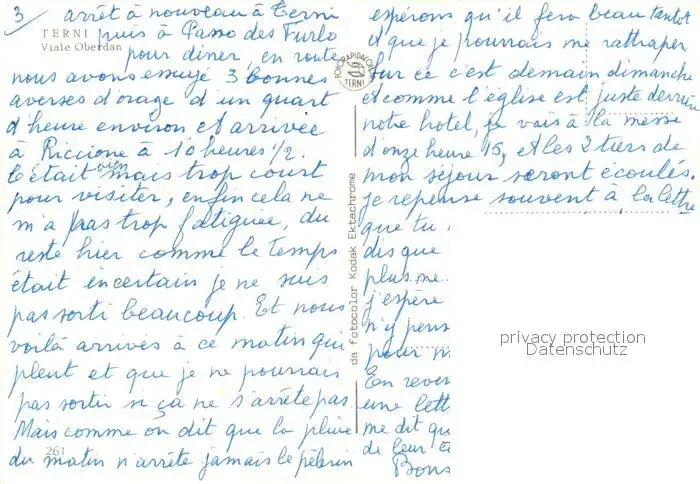 3 arrêt à nouveau à Terni
TERNI
Viale Oberdan
puis à Passo des Furlo
pour diner, en route
nous avons essuyé 3 bonnes
averses d'orage d'un quart
d'heure environ et arrivée
à Riccione à 10 heures 1/2.
C'était bien mais trop court
pour visiter, enfin cela ne
m'a pas trop fatiguée, du
reste hier comme le temps
était incertain je ne suis
pas sorti beaucoup. Et nous
voilà arrivés à ce matin qui
pleut et que je ne pourrais
pas sortir si ça ne s'arrête pas
Mais comme on dit que la pluie
261
du matin n'arrête jamais le pèlerin
FOTORAPIDACOLOR
TERNI
da fotocolor Kodak Ektachrome
espérons qu'il fera beau tantot
et que je pourrais me rattraper
Sur ce c'est demain dimanche
et comme l'église est juste derrière
notre hotel, je vais à la messe
d'onze heure 15, et les 2 tiers de
mon séjour seront écoulés.
je repense souvent à la lettre
que tu
dis que
plus me
j'espère
n'y pens
pour m
En rever
une lett
me dit qu
de leur
Bons
privacy protection
Datenschutz